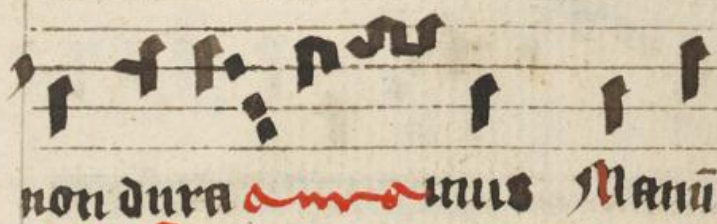 non dura mus Manū